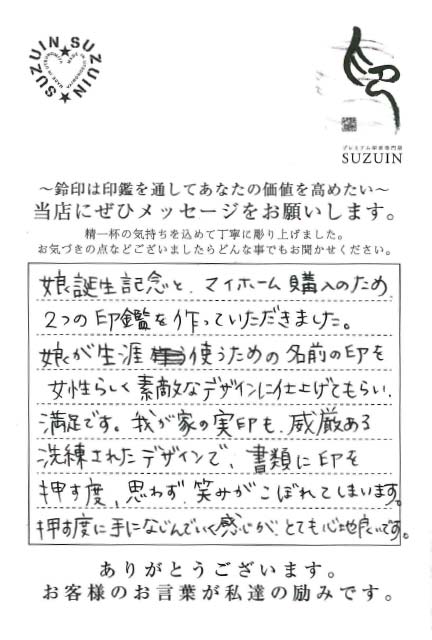 SUZUIN★SUZUIN★
プレミアム印章専門店
SUZUIN
～鈴印は印鑑を通してあなたの価値を高めたい～
当店にぜひメッセージをお願いします。
精一杯の気持ちを込めて丁寧に彫り上げました。
お気づきの点などございましたらどんな事でもお聞かせください。
娘誕生記念と、マイホーム購入のため、
2つの印鑑を作っていただきました。
娘が生涯使うための名前の印を
女性らしく素敵なデザインに仕上げてもらい、
満足です。我が家の実印も、威厳ある
洗練されたデザインで、書類に印を
押す度、思わず笑みがこぼれてしまいます。
押す度に手になじんでいく感じが、とても心地良いです。
ありがとうございます。
お客様のお言葉が私達の励みです。